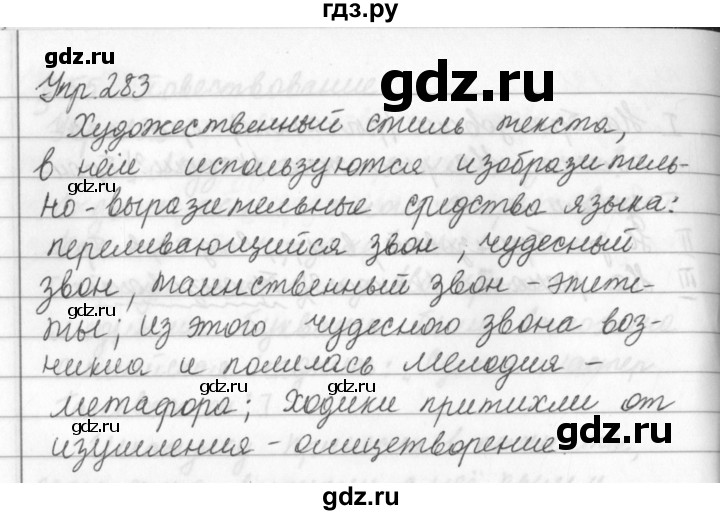 гдз.ру
gdz.ru
gdz.ru
Упр. 283
Художественный стиль текста,
в нём используются изобразитель-
но-выразительные средства языка:
переливающийся звон, чудесный
звон, таинственный звон - эпите-
gdz.ru
gdz.ru
ты; из этого чудесного звона воз-
никла и полилась мелодия -
gdz.ru
gdz.ru
метафора; Ходики притихли от
изумления - олицетворение.
gdz.ru
gdz.ru